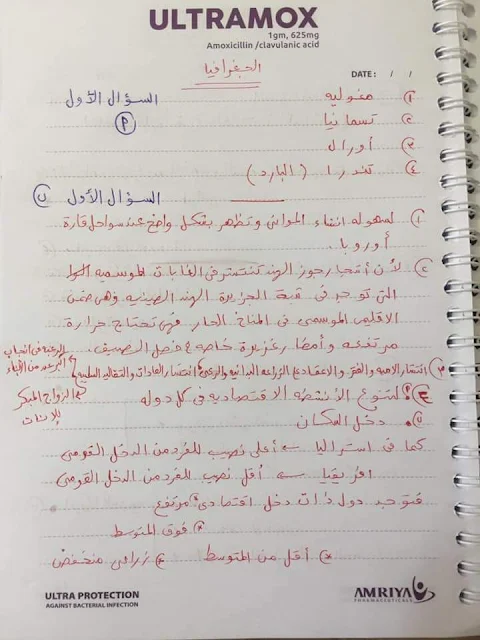 ULTRAMOX
1gm, 625mg
Amoxicillin /clavulanic acid
الجغرافيا
DATE: / /
السؤال الأول
(P)
١) مغوليه
٢) تسمانيا
٣) أورال
٤) تندرا (البارد)
السؤال الأول ب
١) لسهوله انشاء الموانئ وتظهر بشكل واضح عند سواحل قارة
أوروبا.
٢) لأن أشجار جوز الهند تنتشر في الغابات الموسميه
التي توجد في شبة الجزيرة الهند الصينيه وهي ضمن
الاقليم الموسمي في المناخ الحار فهي تحتاج حرارة
مرتفعه وأمطار غزيرة خاصه في فصل الصيف.
٣) انتشار الاميه والفقر والاعتماد على الزراعه البدائيه والرعي، انتشار العادات والتقاليد السلبيه
الرغبه في انجاب
أكبر عدد من الأبناء
الزواج المبكر
للإناث
٤) لتنوع الأنشطه الاقتصاديه في كل دوله
دخل السكان
كما في استراليا ← أعلى نصيب للفرد من الدخل القومي
افريقيا ← أقل نصيب للفرد من الدخل القومي
فتوجد دول ذات دخل اقتصادى * مرتفع
* فوق المتوسط
* أقل من المتوسط * زراعي منخفض
ULTRA PROTECTION
AGAINST BACTERIAL INFECTION
AMRIYA
PHARMACEUTICALS